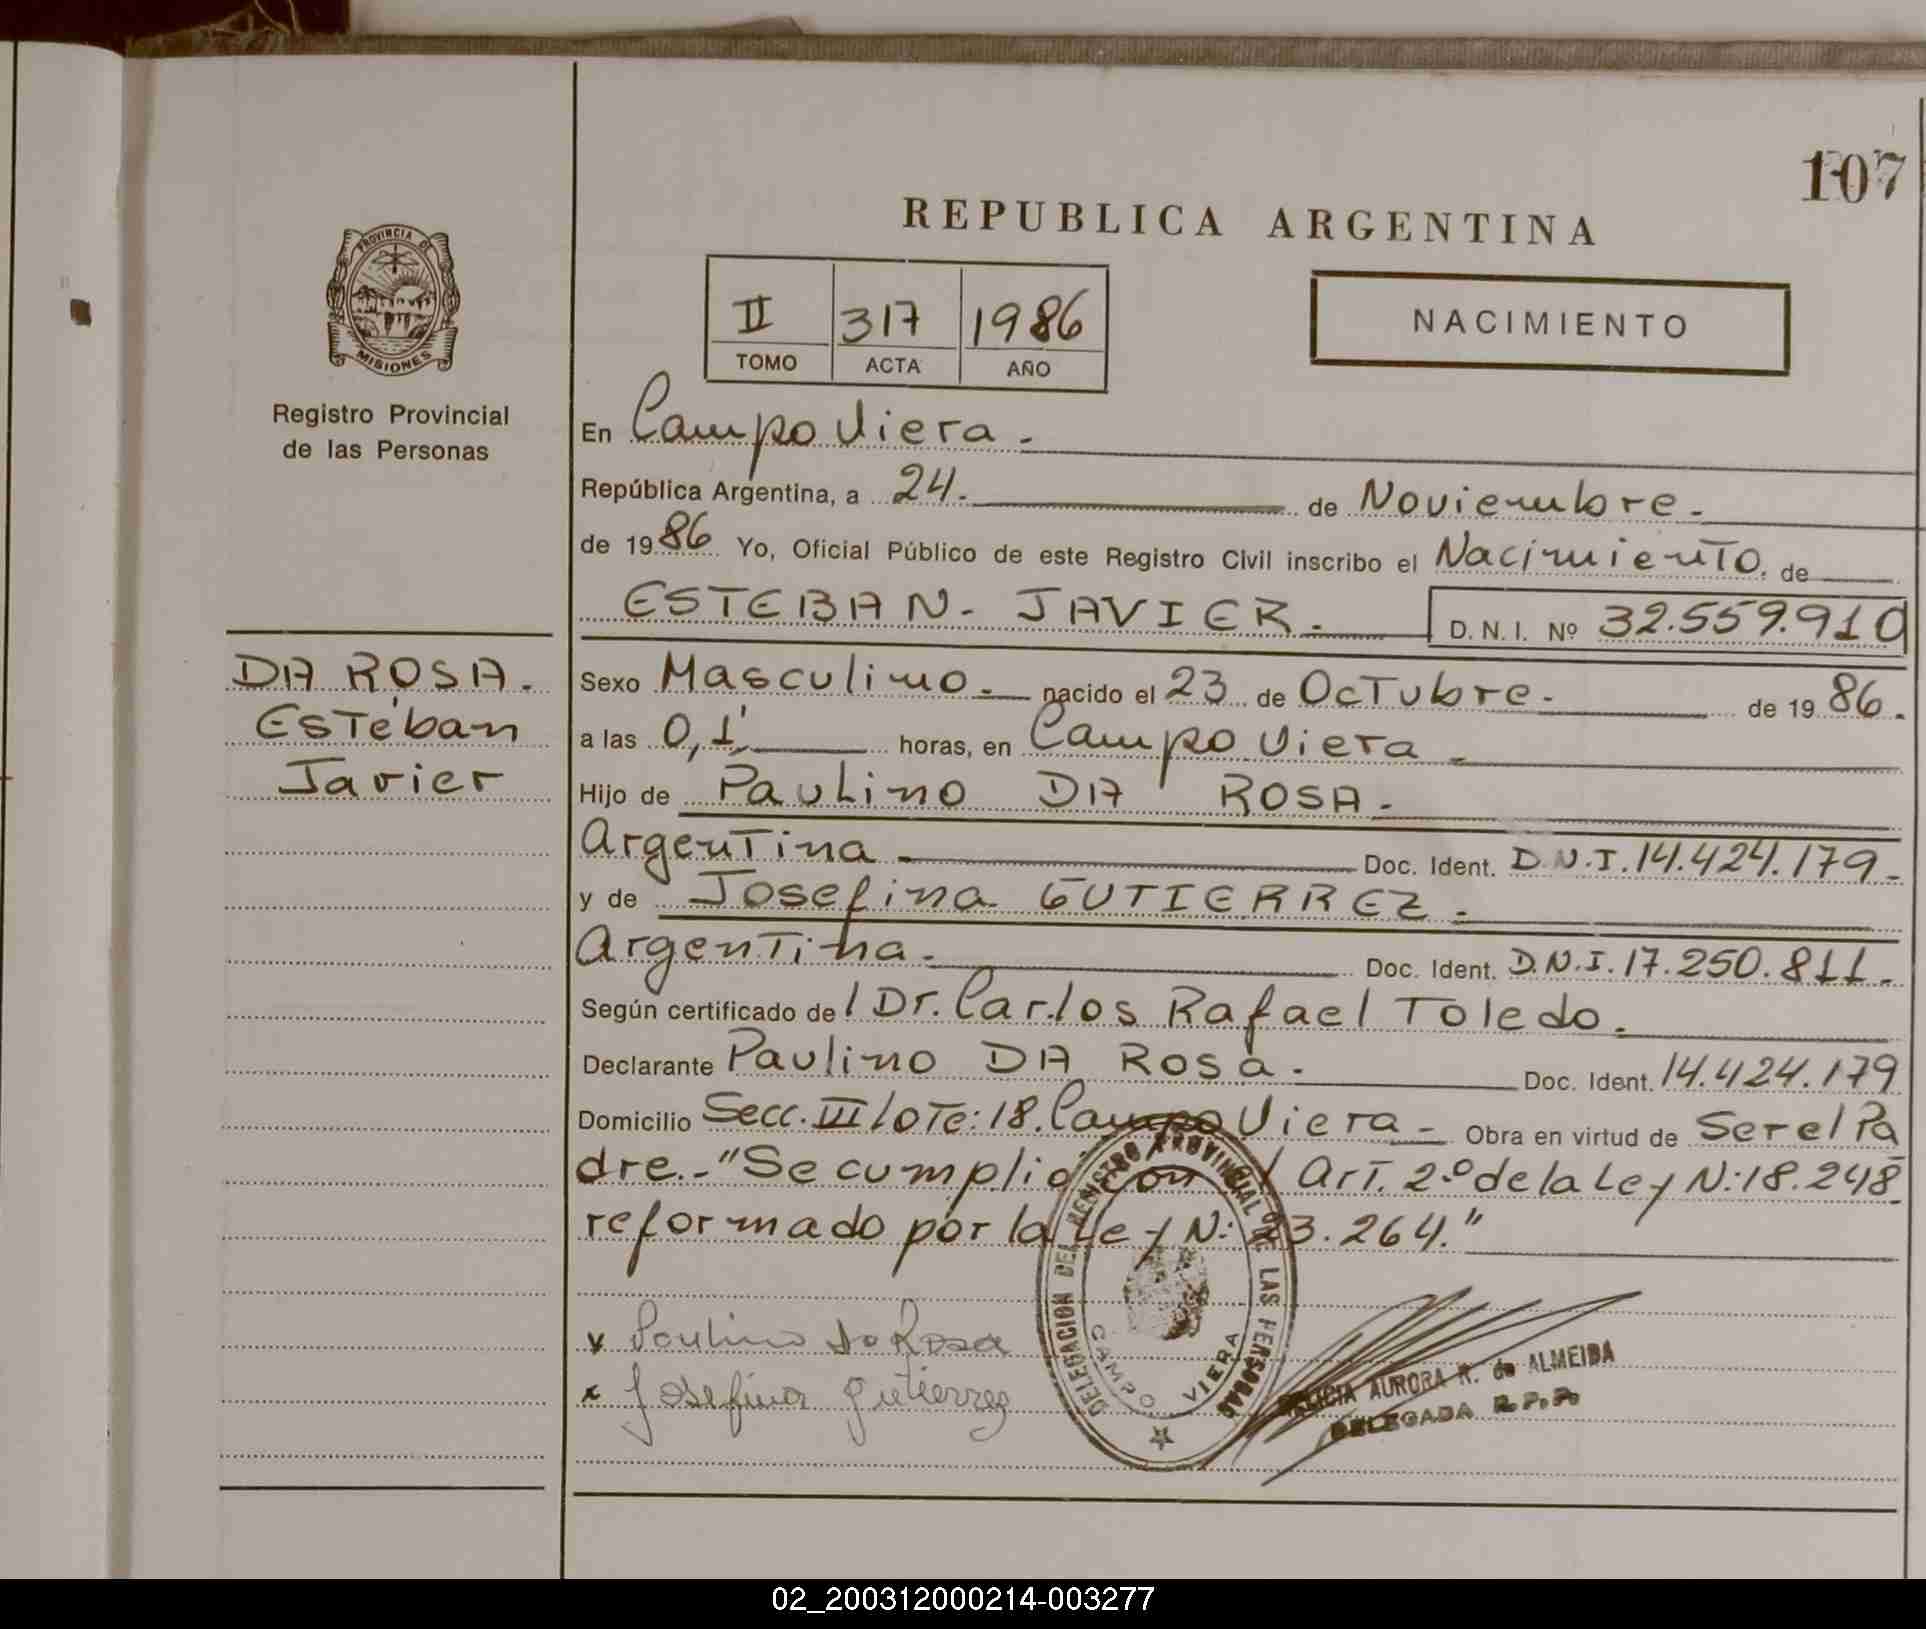 107
REPUBLICA ARGENTINA
PROVINCIA DE
MISIONES
Registro Provincial
de las Personas
II 317 1986
TOMO ACTA AÑO
NACIMIENTO
En Campo Viera.
República Argentina, a 24. de Noviembre.
de 1986 Yo, Oficial Público de este Registro Civil inscribo el Nacimiento. de
ESTEBAN - JAVIER. D. N. I. Nº 32.559.910
DA ROSA.
Esteban
Javier
Sexo Masculino. nacido el 23 de Octubre. de 1986.
a las 0,1' horas, en Campo Viera
Hijo de Paulino DA ROSA.
Argentina Doc. Ident. D.N.I. 14.424.179.
y de Josefina GUTIERREZ.
Argentina. Doc. Ident. D.N.I. 17.250.811.
Según certificado de / Dr. Carlos Rafael Toledo.
Declarante Paulino DA ROSA. Doc. Ident. 14.424.179
Domicilio Secc. VI lote: 18. Campo Viera - Obra en virtud de Ser el Pa
dre.-"Se cumplió con el Art. 2º de la Ley N: 18.248
reformado por la Ley N: 23.264."
Paulino da Rosa
Josefina Gutierrez
DELEGACION DEL REGISTRO PROVINCIAL DE LAS PERSONAS
CAMPO VIERA
AURORA R. de ALMEIDA
DELEGADA R.P.P.
02_200312000214-003277